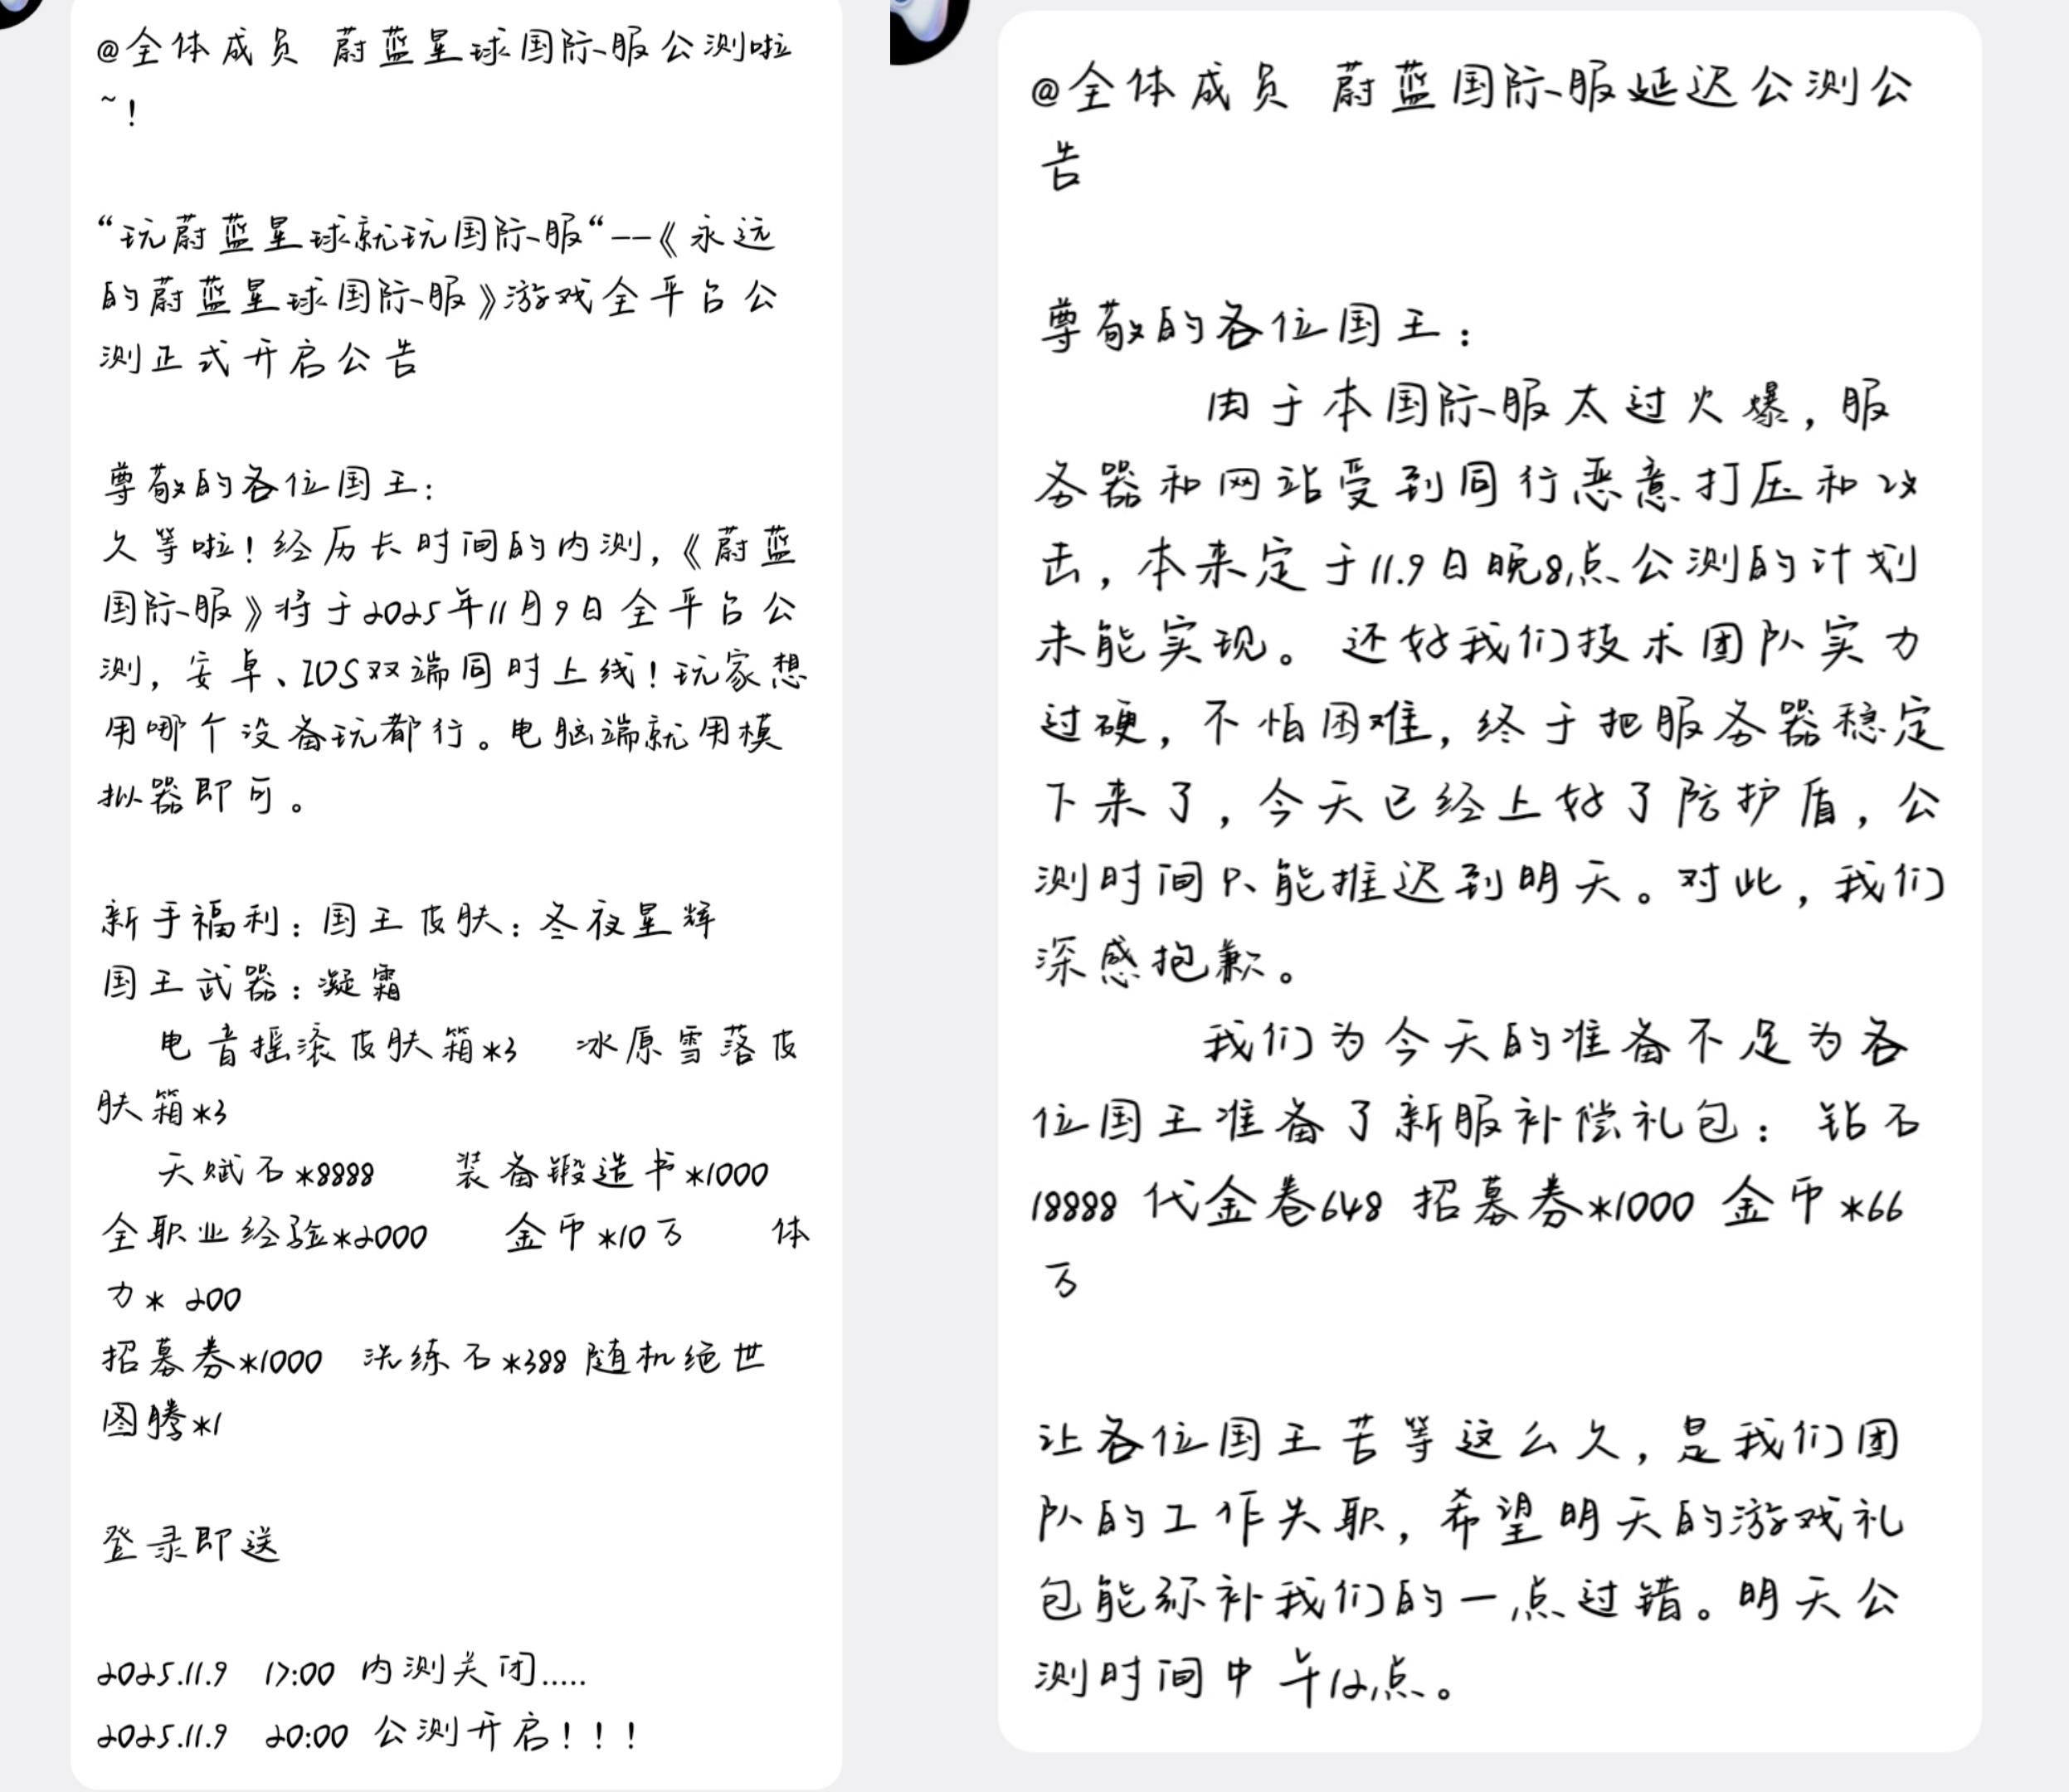 @全体成员 蔚蓝星球国际服公测啦
~！
“玩蔚蓝星球就玩国际服“--《永远
的蔚蓝星球国际服》游戏全平台公
测正式开启公告
尊敬的各位国王：
久等啦！经历长时间的内测，《蔚蓝
国际服》将于2025年11月9日全平台公
测，安卓、IOS双端同时上线！玩家想
用哪个设备玩都行。电脑端就用模
拟器即可。
新手福利：国王皮肤：冬夜星辉
国王武器：凝霜
电音摇滚皮肤箱*3 冰原雪落皮
肤箱*3
天赋石*8888 装备锻造书*1000
全职业经验*2000 金币*10万 体
力* 200
招募券*1000 洗练石*388 随机绝世
图腾*1
登录即送
2025.11.9 17:00 内测关闭.....
2025.11.9 20:00 公测开启！！！
@全体成员 蔚蓝国际服延迟公测公
告
尊敬的各位国王：
由于本国际服太过火爆，服
务器和网站受到同行恶意打压和攻
击，本来定于11.9日晚8点公测的计划
未能实现。还好我们技术团队实力
过硬，不怕困难，终于把服务器稳定
下来了，今天已经上好了防护盾，公
测时间只能推迟到明天。对此，我们
深感抱歉。
我们为今天的准备不足为各
位国王准备了新服补偿礼包：钻石
18888 代金卷648 招募券*1000 金币*66
万
让各位国王苦等这么久，是我们团
队的工作失职，希望明天的游戏礼
包能弥补我们的一点过错。明天公
测时间中午12点。